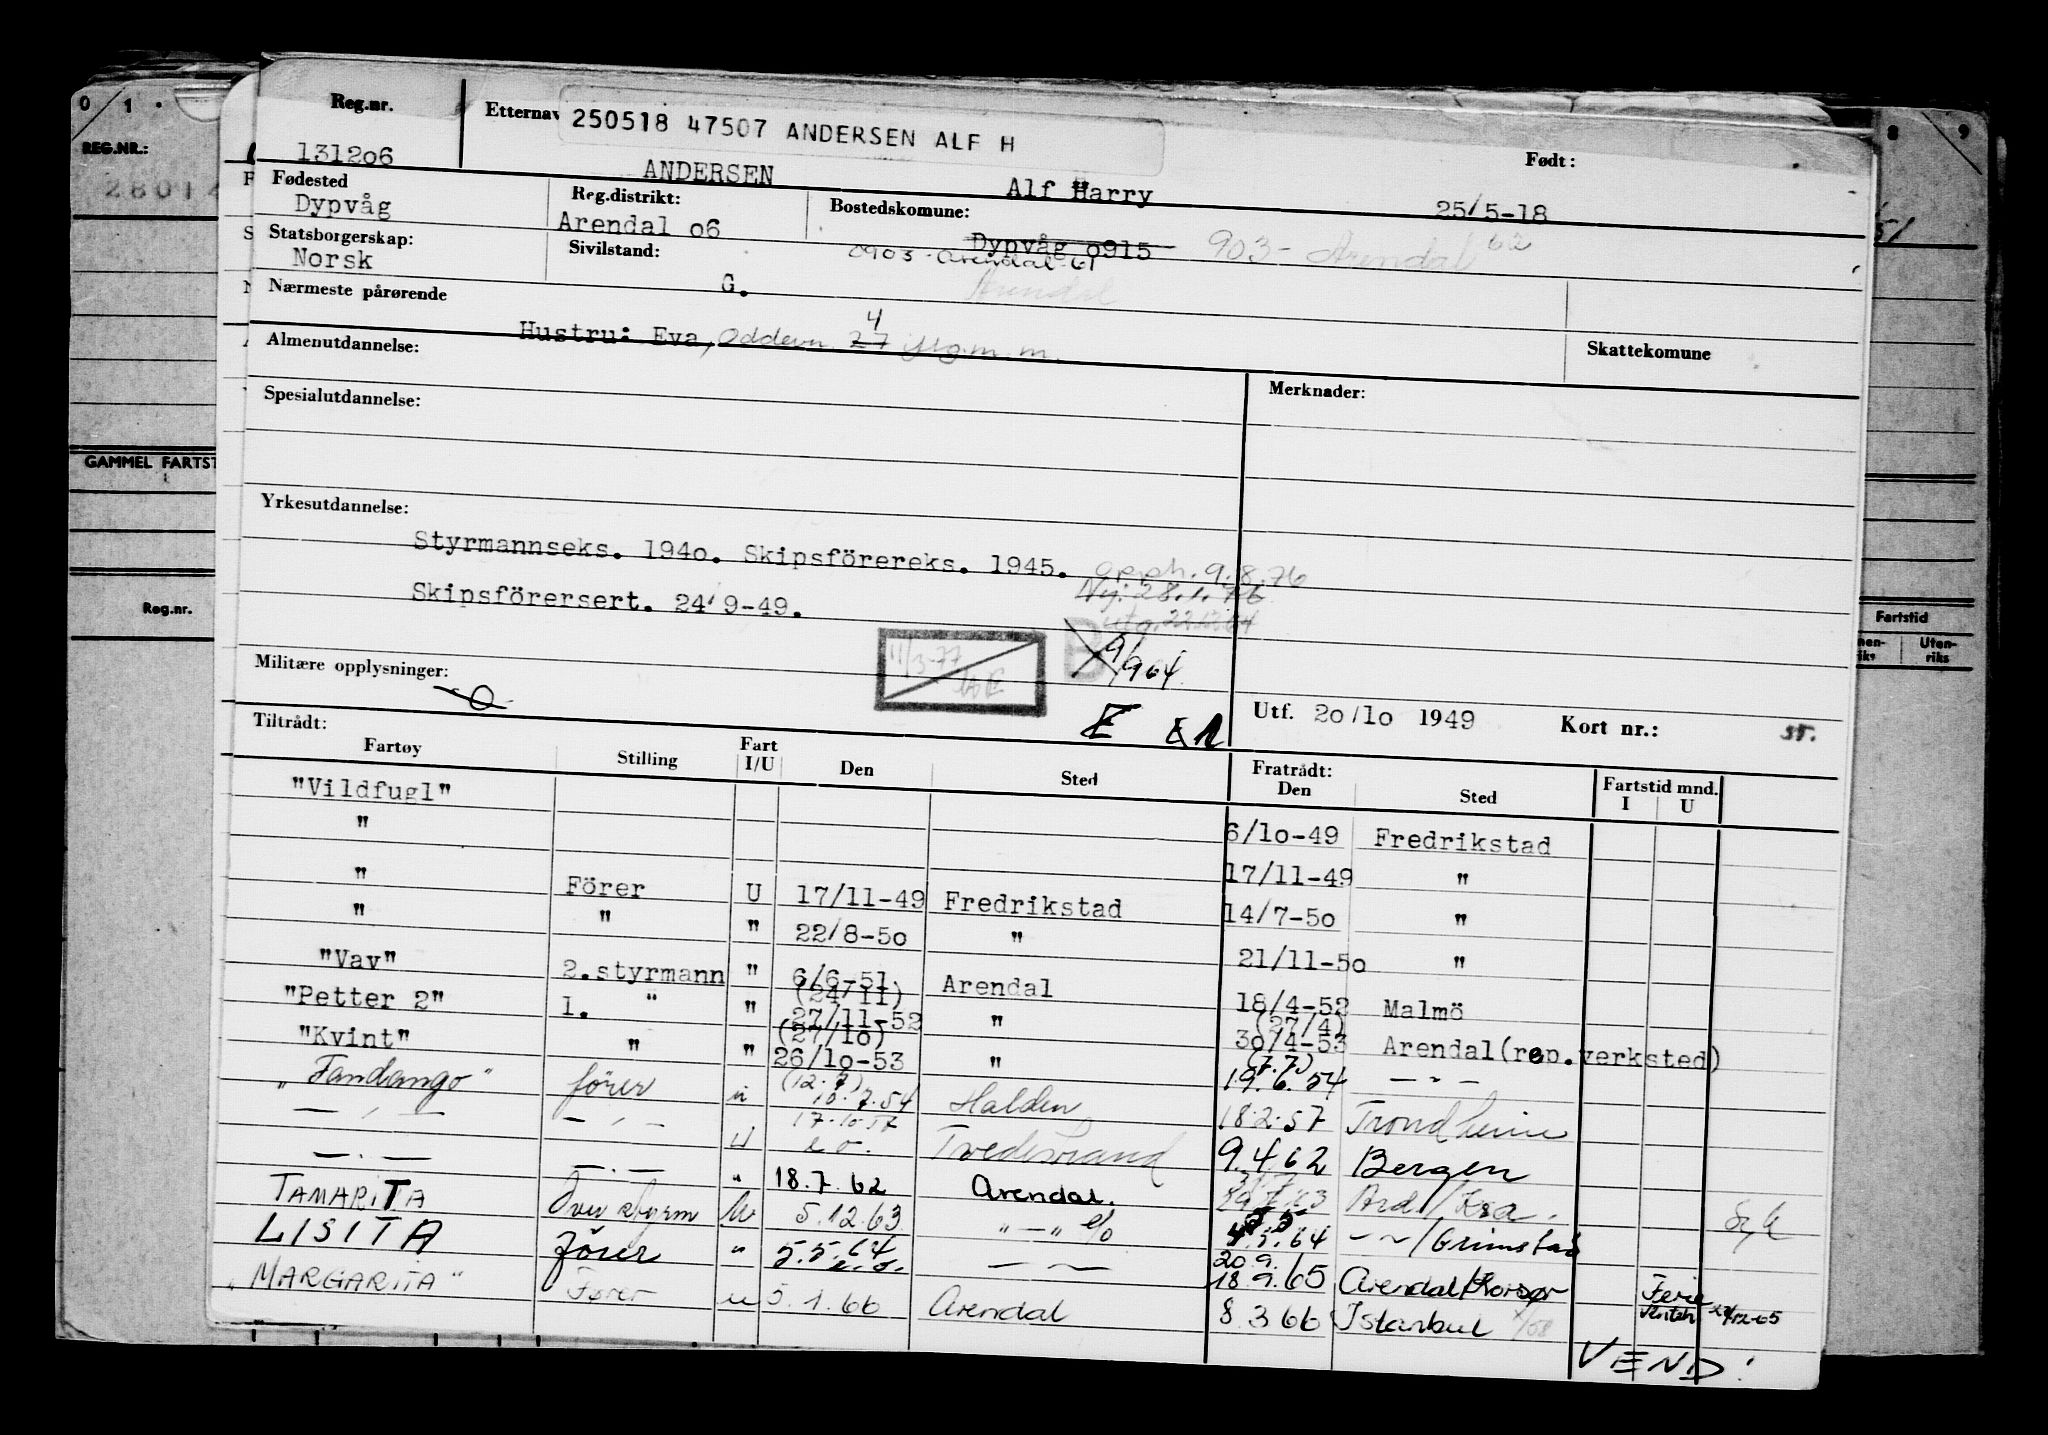 0 1 8 9
REG.NR.:
Reg.nr. Etternav 250518 47507 ANDERSEN ALF H Født:
131206 ANDERSEN Alf Harry 25/5-18
Fødested Reg.distrikt: Bostedskomune:
Dypvåg Arendal o6 Dypvåg o915 903- Arendal 62
Statsborgerskap: Sivilstand: 0903-Arendal-61
Norsk G. Arendal
Nærmeste pårørende
Hustru: Eva, 27 4
Almenutdannelse: Skattekomune
Spesialutdannelse: Merknader:
GAMMEL FARTST
Yrkesutdannelse:
Styrmannseks. 194o. Skipsförereks. 1945. 9.8.76
Skipsförersert. 24/9-49. Ny: 28.1.76
Reg.nr. Fartstid
Uten-
riks
11/3-77
9/9 64
Militære opplysninger:
Utf. 2o/1o 1949 Kort nr.:
Tiltrådt: Fratrådt:
Fartøy Stilling Fart I/U Den Sted Den Sted Fartstid mnd. I U
"Vildfugl"
" 6/1o-49 Fredrikstad
17/11-49 "
" Förer U 17/11-49 Fredrikstad 14/7-5o "
" " " 22/8-5o " 21/11-5o "
"Vav" 2.styrmann " 6/6-51 Arendal 18/4-52 Malmö
(24/11) (27/4)
"Petter 2" 1. " " 27/11-52 " 3o/4-53 Arendal(rep.verksted)
(27/1o) (7.7)
"Kvint" " " 26/1o-53 " 19.6.54 — " —
(12.7)
"Fandango" förer u 10.7.54 Halden 18.2.57 Trondheim
17.10.57
— " — — " — U e.o. Tvedestrand 9.4.62 Bergen
— . — — . — " 18.7.62 Arendal. Ard/Kra.
TAMARITA Over styrm U 5.12.63 " — " e/o 5.64 — ~ / Grimstad
5.5
LISITA förer " 5.5.64 e.o. — ~ 18.9.65 Arendal/Korsør Ferie
20.9.
"MARGARITA" Fører u 5.1.66 Arendal 8.3 66 Istanbul
VEND!